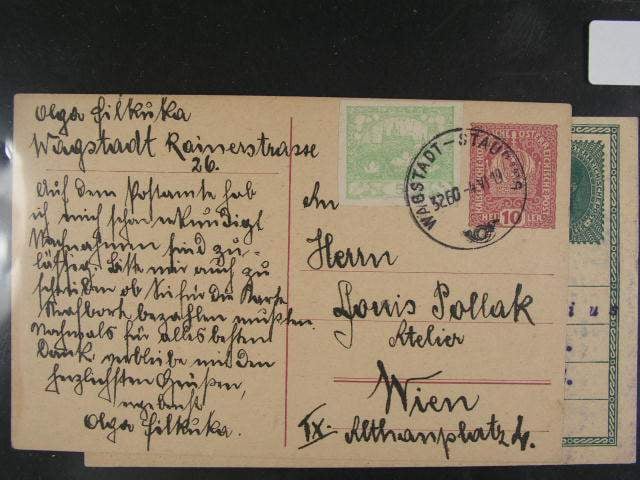 Olga Filkuka
Wagstadt Rainerstrasse
26.
Auf dem Postamte hab
ich mich schon erkundigt
Nachnahmen sind zu-
lässig. Bitte mir auch zu
schreiben ob Sie für die Karte
Strafporto bezahlen mußten.
Nochmals für alles besten
Dank verbleibe mit den
herzlichsten Grüßen,
ergebenst
Olga Filkuka.
WAGSTADT-STAU
3260
10
An
Herrn
Louis Pollak
Atelier
Wien
IX. Althanplatz 4.